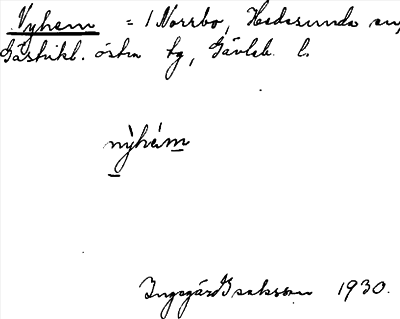 Nyhem = 1 Norrbo, Hedesunda sn,
Gästrikl. östra tg, Gävleb. l.
nỳhém
Ingegärd Isaksson 1930.